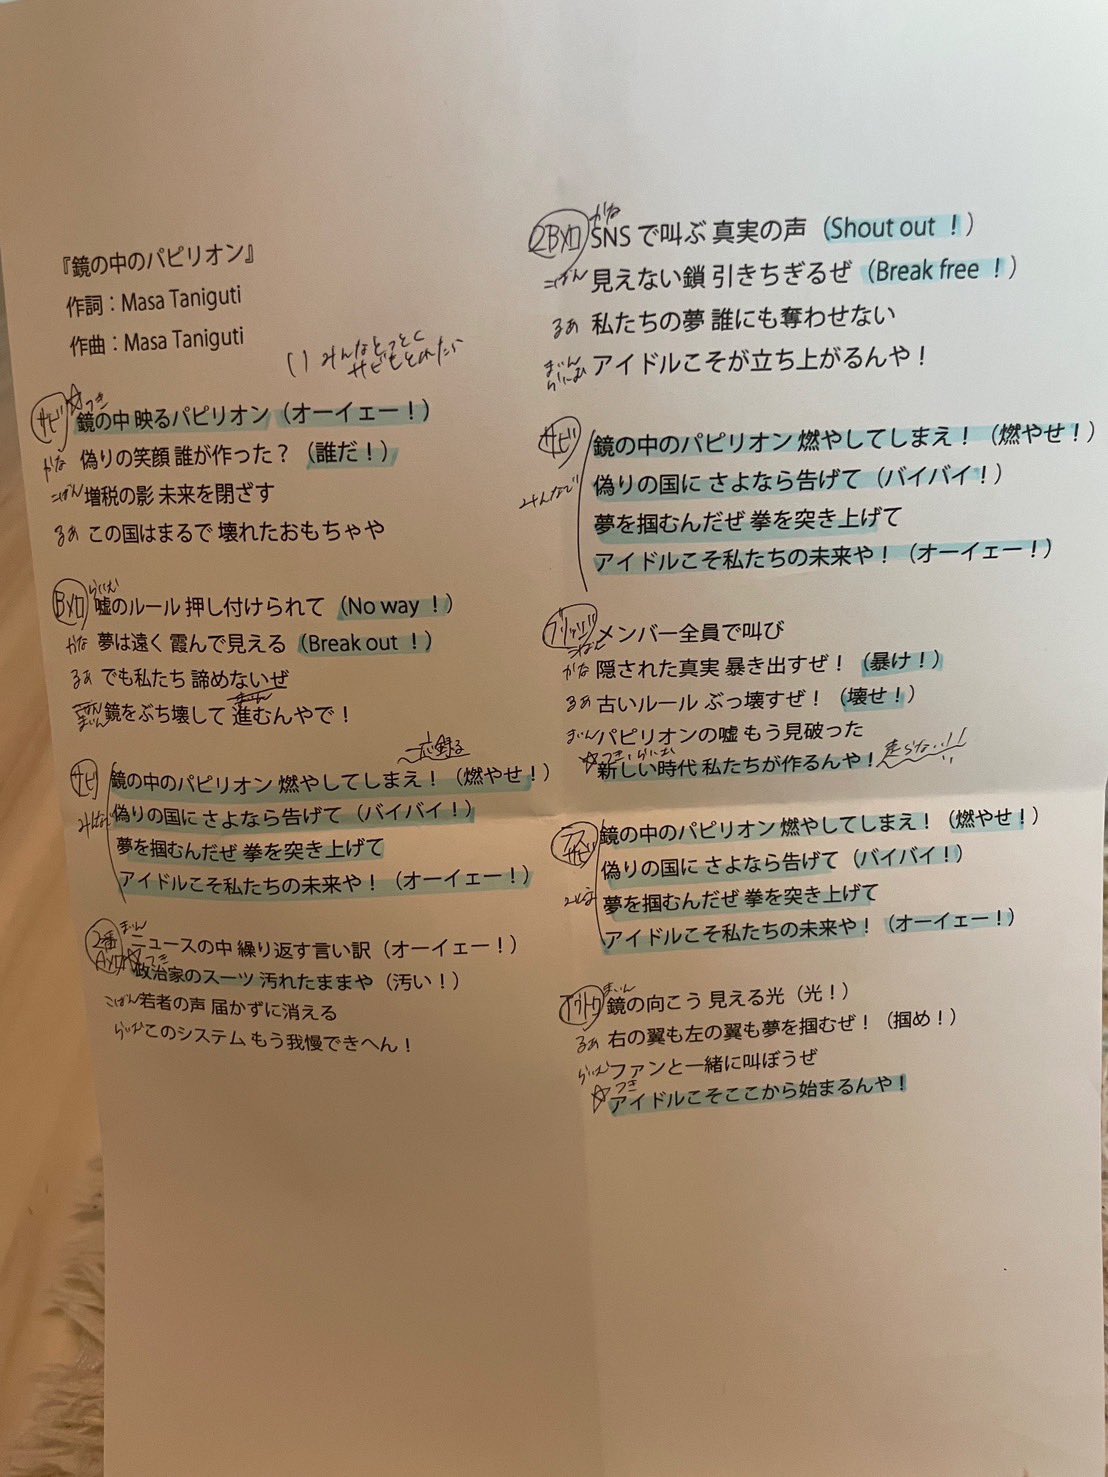 『鏡の中のパピリオン』
作詞：Masa Taniguti
作曲：Masa Taniguti
( ) みんなとっとく
サビもとれたら
サビ
☆つき
鏡の中 映るパピリオン（オーイェー！）
かな 偽りの笑顔 誰が作った？（誰だ！）
こばん 増税の影 未来を閉ざす
るあ この国はまるで 壊れたおもちゃや
Bメロ
らいむ
嘘のルール 押し付けられて（No way ！）
かな 夢は遠く 霞んで見える（Break out ！）
るあ でも私たち 諦めないぜ
まいん 鏡をぶち壊して 進むんやで！
一応録る
サビ 鏡の中のパピリオン 燃やしてしまえ！（燃やせ！）
みんなで 偽りの国に さよなら告げて（バイバイ！）
夢を掴むんだぜ 拳を突き上げて
アイドルこそ私たちの未来や！（オーイェー！）
2番
Aメロ
まいん
ニュースの中 繰り返す言い訳（オーイェー！）
☆つき
政治家のスーツ 汚れたままや（汚い！）
こばん 若者の声 届かずに消える
らいむ このシステム もう我慢できへん！
2Bメロ
かな
SNS で叫ぶ 真実の声（Shout out ！）
こばん 見えない鎖 引きちぎるぜ（Break free ！）
るあ 私たちの夢 誰にも奪わせない
まいん
らいむ アイドルこそが立ち上がるんや！
サビ 鏡の中のパピリオン 燃やしてしまえ！（燃やせ！）
みんなで 偽りの国に さよなら告げて（バイバイ！）
夢を掴むんだぜ 拳を突き上げて
アイドルこそ私たちの未来や！（オーイェー！）
ブリッジ メンバー全員で叫び
かな 隠された真実 暴き出すぜ！（暴け！）
るあ 古いルール ぶっ壊すぜ！（壊せ！）
まいん パピリオンの嘘 もう見破った
☆つき・らいむ
新しい時代 私たちが作るんや！ 走らない!!
ラスサビ 鏡の中のパピリオン 燃やしてしまえ！（燃やせ！）
偽りの国に さよなら告げて（バイバイ！）
夢を掴むんだぜ 拳を突き上げて
アイドルこそ私たちの未来や！（オーイェー！）
アウトロ
まいん
鏡の向こう 見える光（光！）
るあ 右の翼も左の翼も夢を掴むぜ！（掴め！）
らいむ ファンと一緒に叫ぼうぜ
☆つき
アイドルこそここから始まるんや！